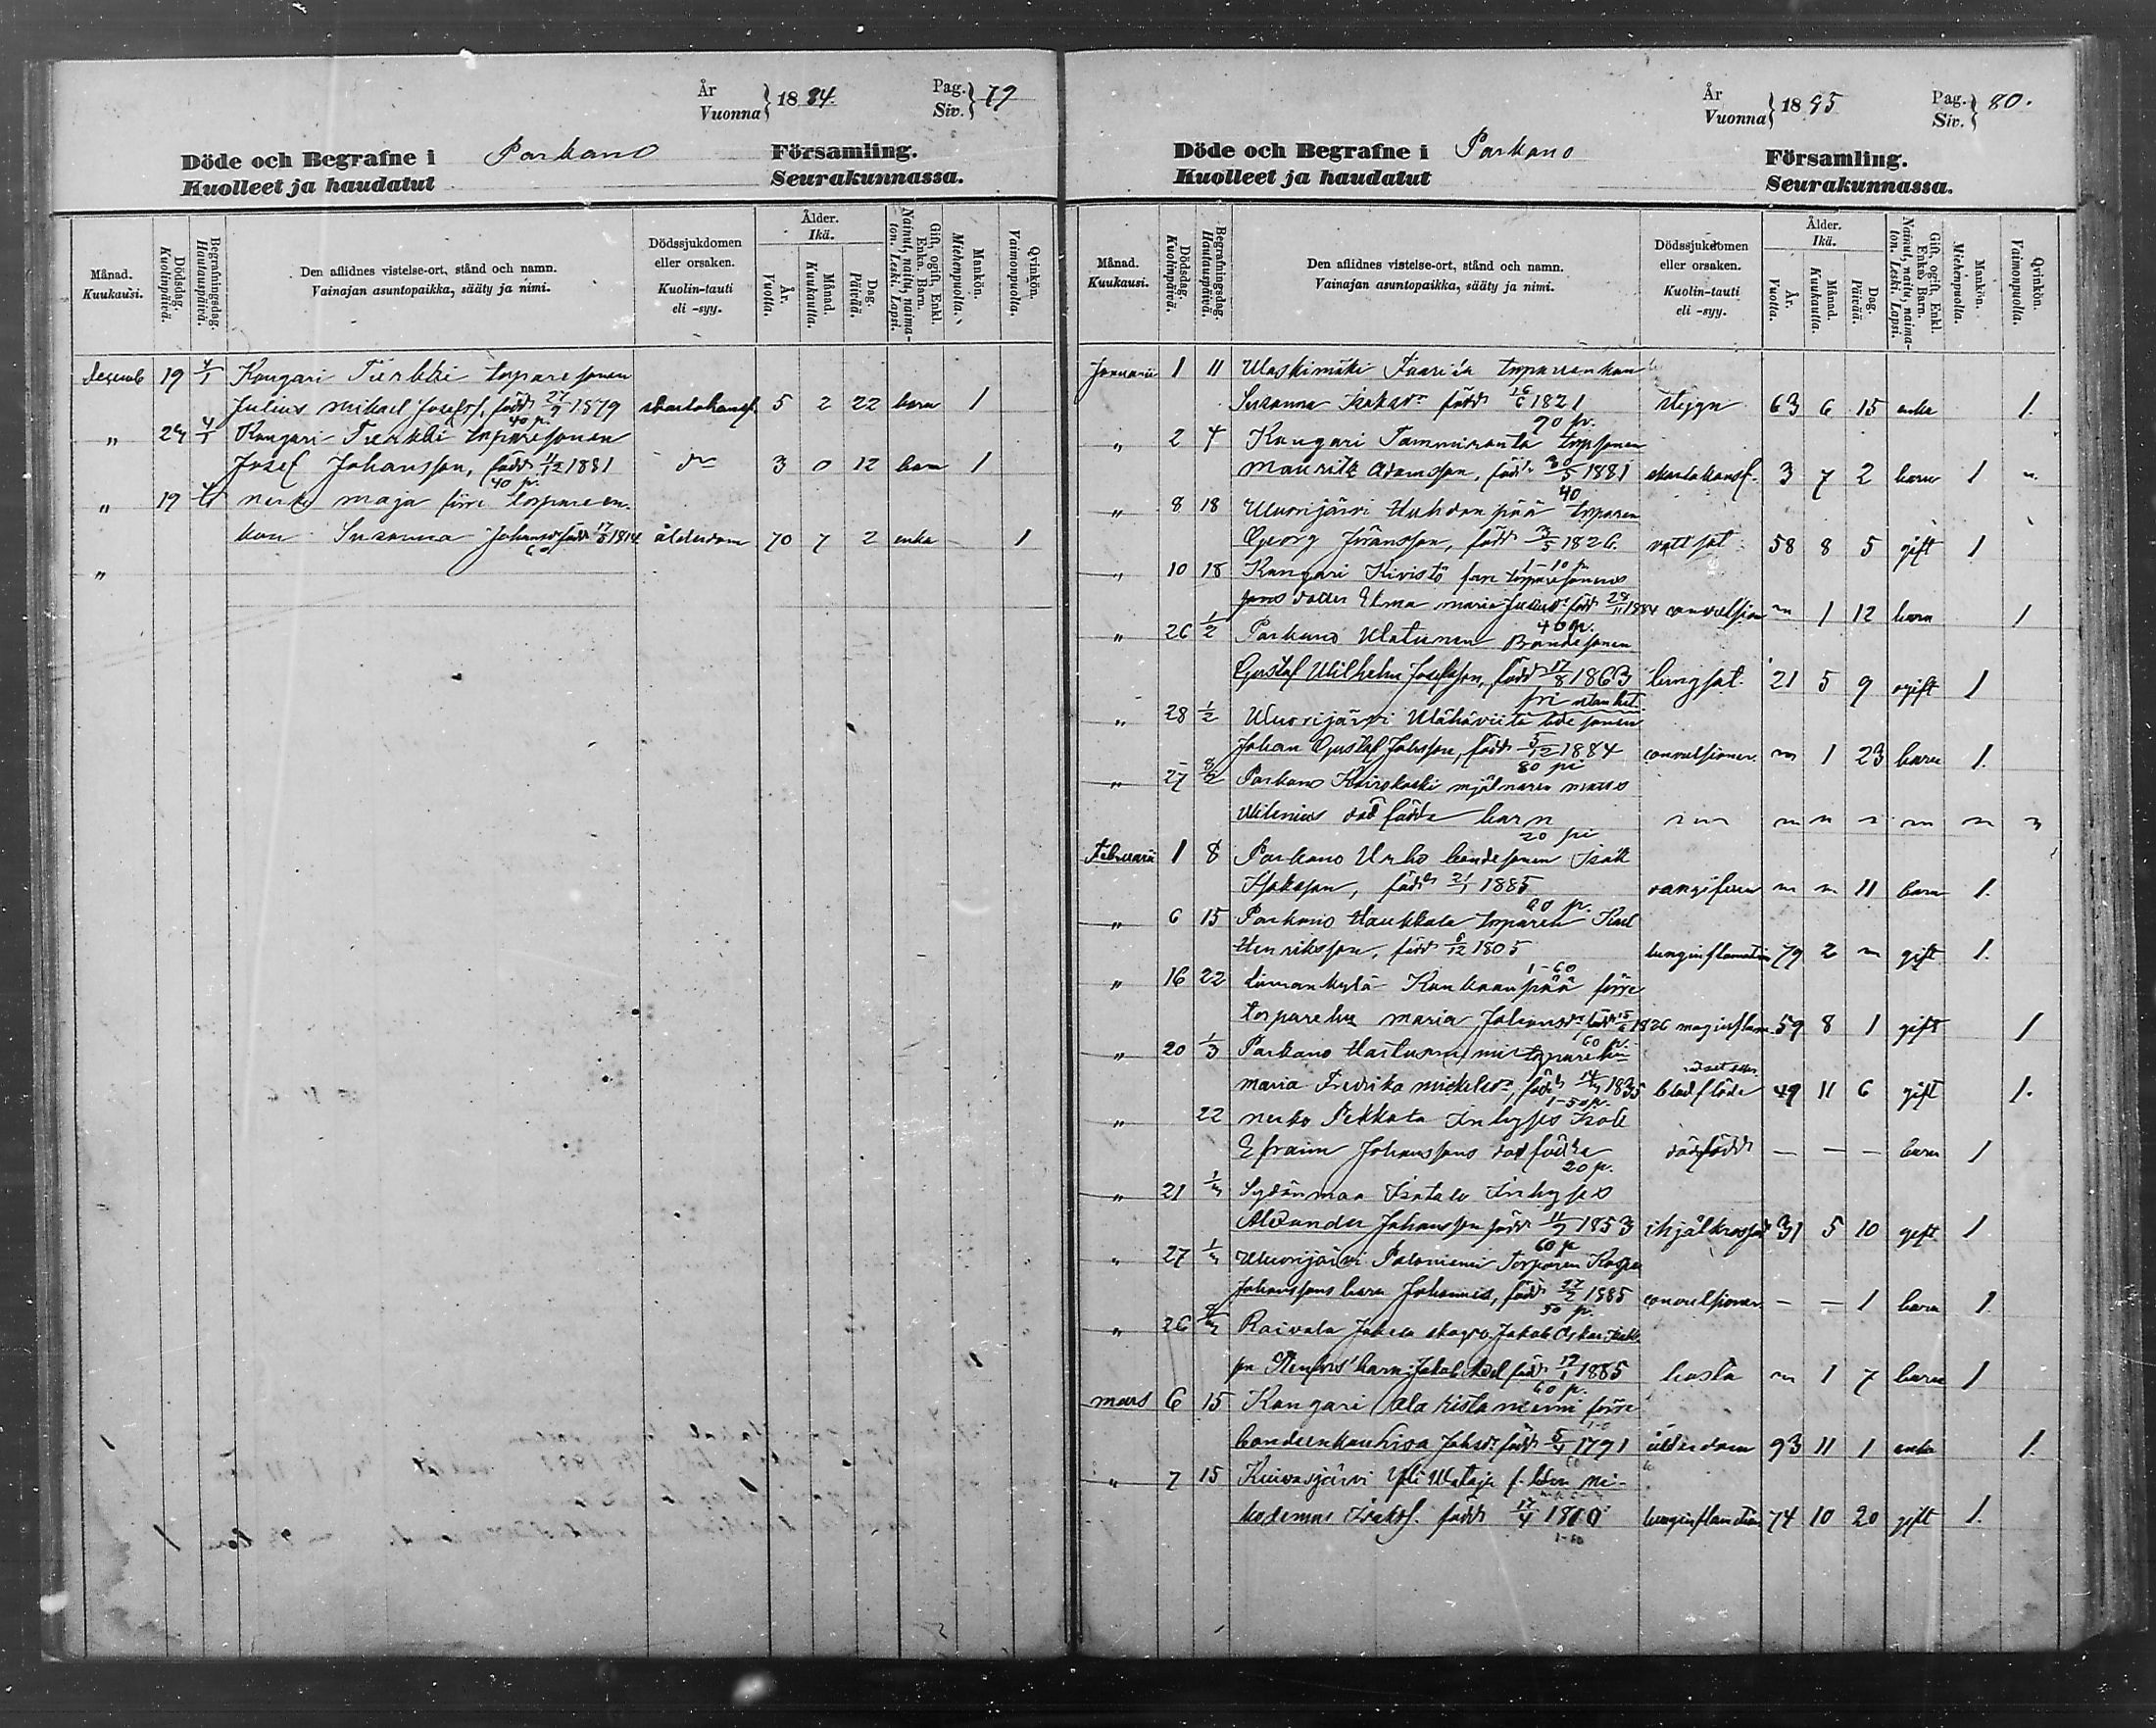 År
Vuonna } 1884. Pag. Siv. } 79
Döde och Begrafne i Parkano Församling.
Kuolleet ja haudatut Seurakunnassa.
Månad. Kuukausi. Dödsdag. Kuolinpäivä. Begrafningsdag. Hautauspäivä. Den aflidnes vistelse-ort, stånd och namn. Vainajan asuntopaikka, sääty ja nimi. Dödssjukdomen eller orsaken. Kuolin-tauti eli -syy. Ålder. Ikä. År. Vuotta. Månad. Kuukautta. Dag. Päivää. Gift, ogift, Enkl. Enka. Barn. Nainut, naitu, naimaton. Leski. Lapsi. Mankön. Miehenpuolta. Qvinkön. Vaimonpuolta.
Decemb 19 4/1 Kangari Tierkki torparesonen
Julius Mikael Josefs. född 27/9 1879 5 2 22 barn 1
40 p.
" 24 4/1 Kangari Tierkki torparesonen
Josef Johansson, född 12/12 1881 do 3 0 12 barn 1
40 p.
" 19 nerko maja förre torpareen-
kan Susanna Johansdr född 17/5 1814 ålderdom 70 7 2 enka 1
60
"
År
Vuonna } 1885 Pag. Siv. } 80.
Döde och Begrafne i Parkano Församling.
Kuolleet ja haudatut Seurakunnassa.
Månad. Kuukausi. Dödsdag. Kuolinpäivä. Begrafningsdag. Hautauspäivä. Den aflidnes vistelse-ort, stånd och namn. Vainajan asuntopaikka, sääty ja nimi. Dödssjukdomen eller orsaken. Kuolin-tauti eli -syy. Ålder. Ikä. År. Vuotta. Månad. Kuukautta. Dag. Päivää. Gift, ogift, Enkl. Enka. Barn. Nainut, naitu, naimaton. Leski. Lapsi. Mankön. Miehenpuolta. Qvinkön. Vaimonpuolta.
Januarii 1 11 torpareenkan
Susanna Isaksdr född 16/6 1821 styggn 63 6 15 enka 1.
90 p.
" 2 4 Kangari Tammiranta torpsonen
Mauritz Adamsson, född 30/5 1881 3 7 2 barn 1
40
" 8 18 Wuorijärvi Huhdanpää torparen
Georg Jöransson, född 3/5 1826. vattsot 58 8 5 gift 1
1-10 p
" 10 18 Kangari Kivistö förre torparesonens
dotter Elma Maria född 28/11 1884 convulsion 1 12 barn 1
40 p.
" 26 1/2 Parkano Alatunen Bondesonen
Gustaf Wilhelm Josefsson, född 17/8 1863 lungsot. 21 5 9 ogift 1
" 28 1/2 Wuorijärvi
Johan Gustaf Johsson, född 5/12 1884 convulsioner 1 23 barn 1.
80 pi
" 27 8/2 Parkano Käiröskoski mjölnaren
Wilenius dödfödde barn
20 pi
Februarii 1 8 Parkano Urho bondesonen Isak
Isaksson, född 21/1 1885 11 barn 1.
60 p.
" 6 15 Parkano Haukkala torparen Karl
Henriksson, född 6/12 1805 lunginflamation 79 2 gift 1.
1-60
" 16 22 Linnankylä Kankaanpää förre
torparehu Maria Johansdr född 15/6 1826 59 8 1 gift 1
60 p.
" 20 1/3 Parkano torparehu
Maria Fredrika Mickelsdr, född 14/3 1835 blodflöde 49 11 6 gift 1.
1-50 p.
" 22 nerko Pekkala Inhyses Isak
Efraim Johanssons dödfödde dödfödd — — — barn 1
20 p.
" 21 1/3 Sydänmaa Isotalo Inhyses
Alexander Johansson född 11/9 1853 ihjälkrossad 31 5 10 gift 1
60 p
" 27 1/3 Wuorijärvi Paloniemi Torparen
Johanssons barn Johannes, född 27/2 1885 convulsioner — — 1 barn 1.
50 p.
" 26 8/3 Raivala Jakob Oskar
barn: Jakob Axel född 19/1 1885 hosta 1 7 barn 1
60 p.
mars 6 15 Kangari Ala Ristaniemi förre
bondeenkan Lisa Johsdr född 5/4 1791 ålderdom 93 11 1 enka 1.
" 7 15 Kuivasjärvi Yli Wataja f. bon Ni-
kodemus Isaksf. född 17/4 1810 lunginflamation 74 10 20 gift 1.
1-60